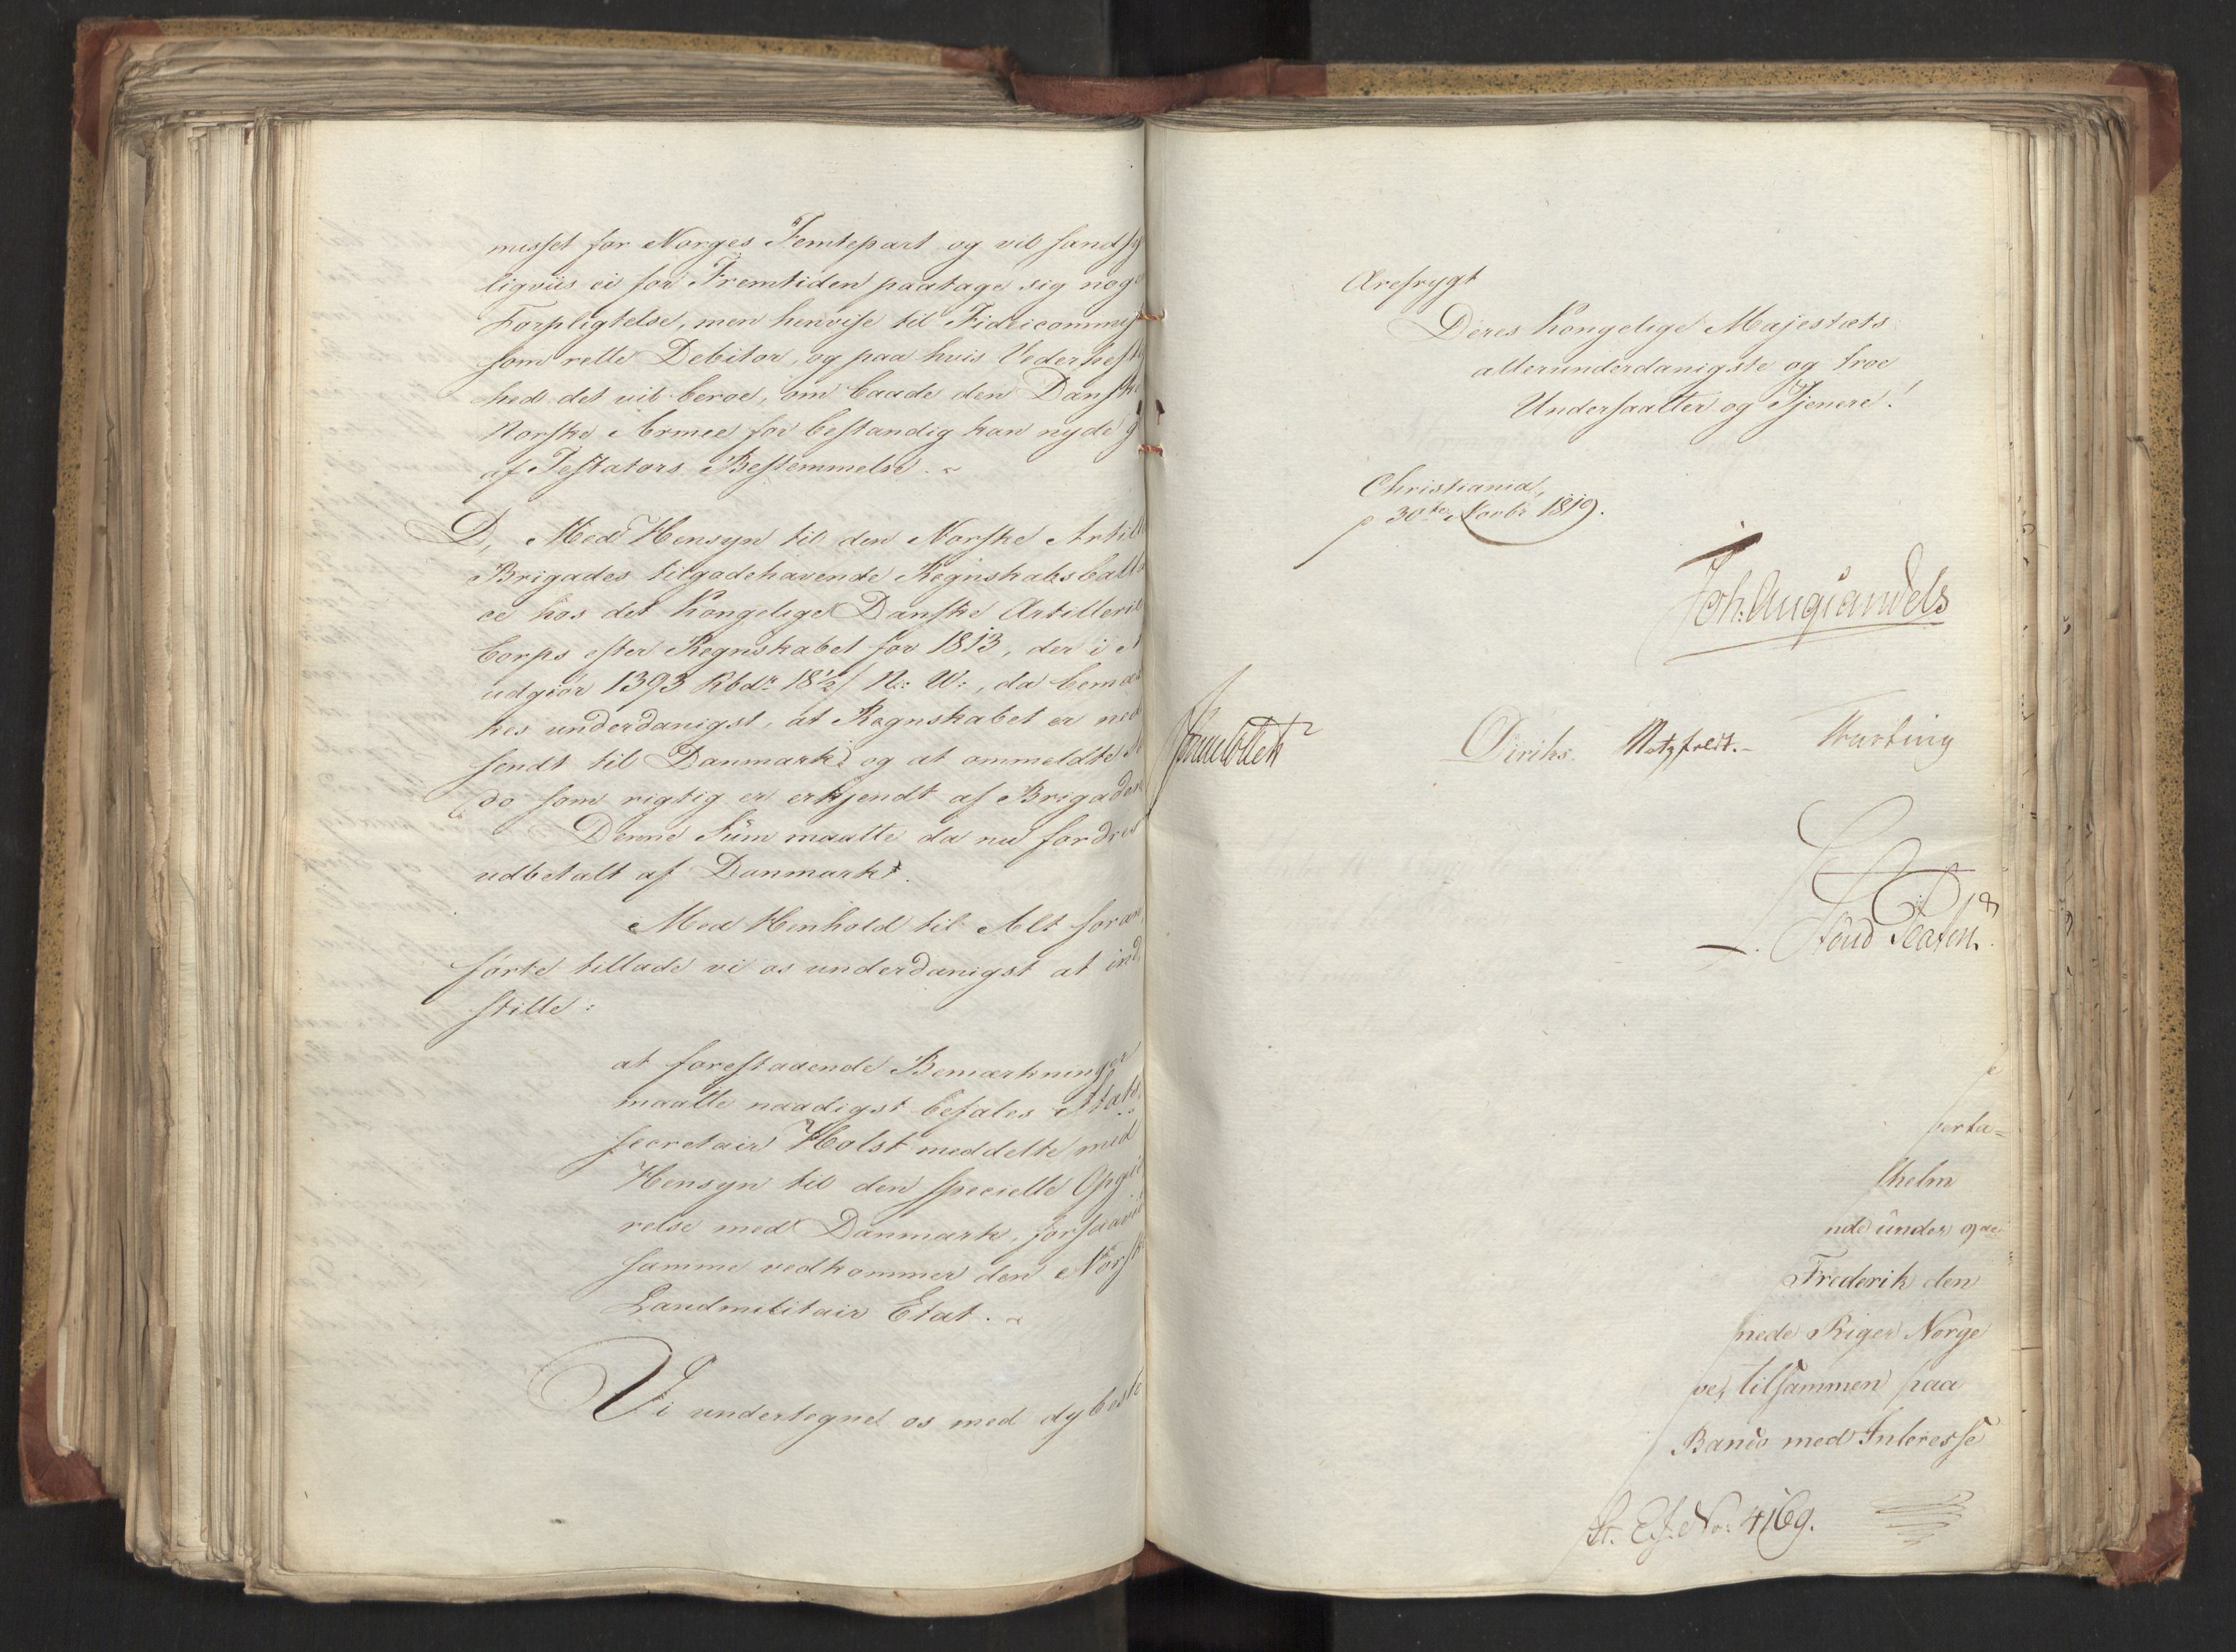 misset for Norges Femtepart og vil sands
ligviis ei for Fremtiden paatage sig noge
Forpligtelse, men henvise til Fideicommis
som rette Debitor, og paa hvis Vederheft
hed det vil beroe, om baade den Danske
Norske Armee for bestandig kan nyde g
af Testators Bestemmelse. ~
D, Med Hensyn til den Norske Artill
Brigades tilgodehavende Regnskabs ball
ce hos det Kongelige Danske Artillerie
Corps efter Regnskabet for 1813, der i
udgiør 1393 Rbdr 18½ / N: W:, da bemær
kes underdanigst, at Regnskabet er ned
sendt til Danmark og at ommeldte
do som rigtig er erkjendt af Brigaden
Denne Sum maatte da nu fordres
udbetalt af Danmark.
Med Henhold til Alt foran
førte tillade vi os underdanigst at ind
stille:
at forestaaende Bemærkninger
maatte naadigst befales Stats
secretair Holst meddelte med
Hensyn til den specielle Opgiø
relse med Danmark, forsaavidt
samme vedkommer den Norske
Landmilitair Etat. ~
Vi undertegne os med dybeste
Ærefrygt
Deres Kongelige Majestæts
allerunderdanigste og troe
Undersaatter og Tjenere!
Christiania,
30te Novbr 1819.
Joh. Aug Sandels
Sommerhielm
Diriks. Motzfeldt. Krefting
verta=
lhelm
nde under 9de
Frederik den
nede Riger Norge
ve, tilsammen paa
Banco med Interesse
St. Ex. No: 4169.